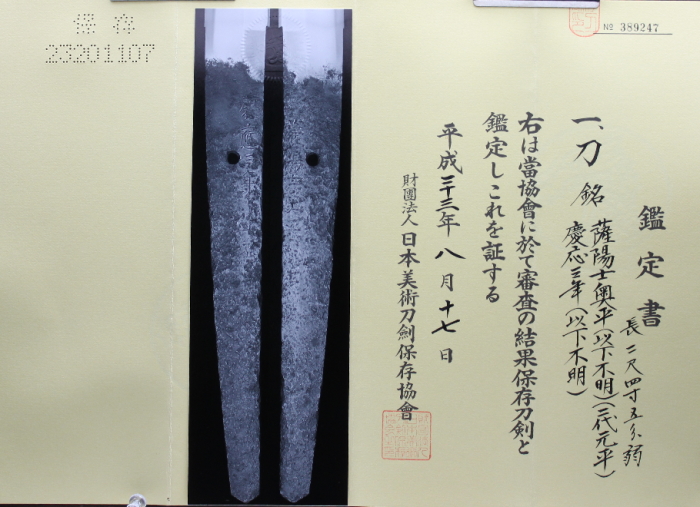 保存
23201107
No 389247
鑑定書
一、刀 銘 薩陽士奥平(以下不明)(三代元平)
慶応三年(以下不明)
長二尺四寸五分弱
右は當協會に於て審査の結果保存刀剣と
鑑定しこれを証する
平成二十三年八月十七日
財團法人 日本美術刀劍保存協會